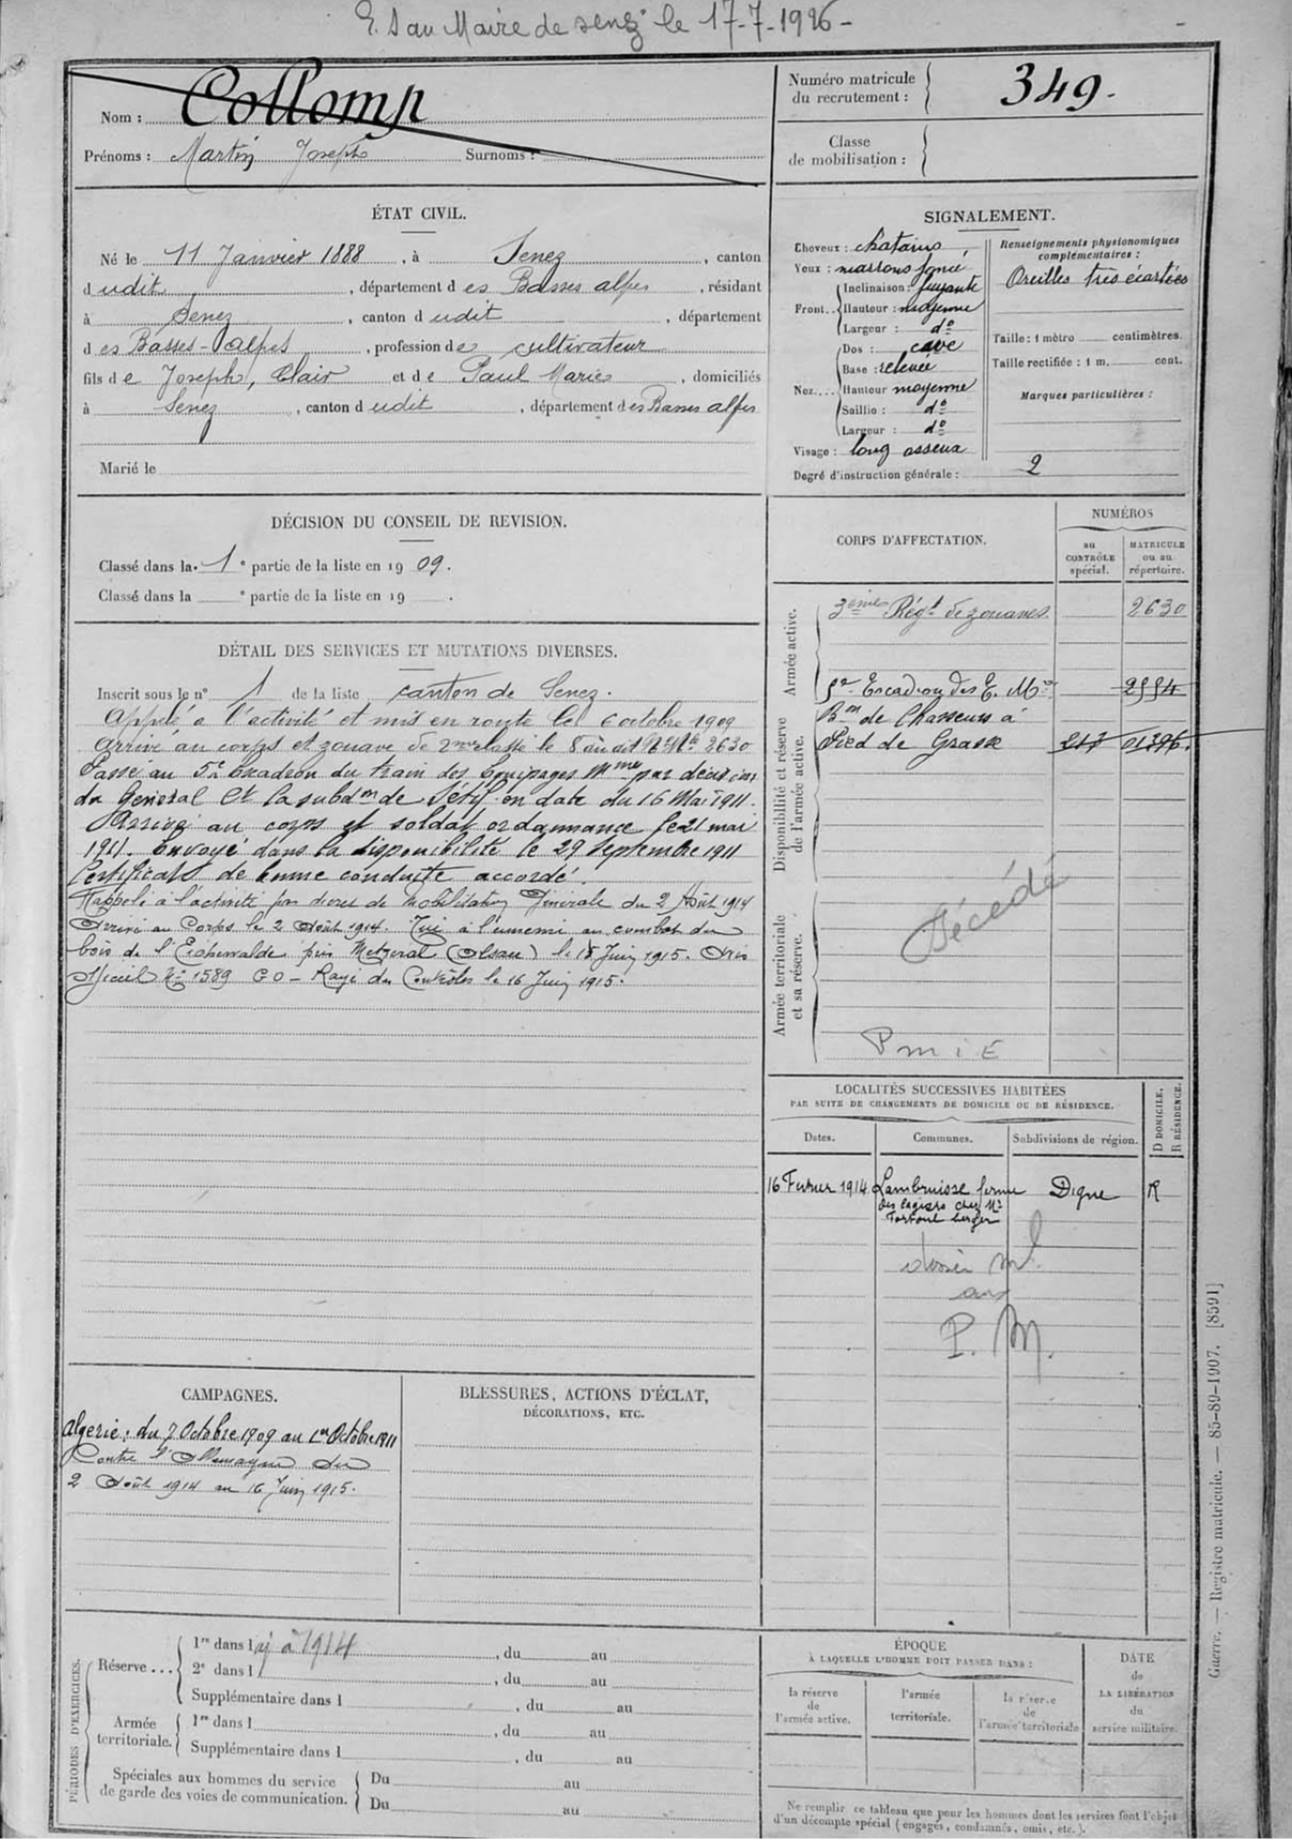 E.S au Maire de Senez le 17-7-1926 -
Nom : Collomp
Prénoms : Martin Joseph Surnoms :
Numéro matricule
du recrutement : 349.
Classe
de mobilisation :
ÉTAT CIVIL.
Né le 11 Janvier 1888, à Senez, canton
dudit, département des Basses alpes, résidant
à Senez, canton dudit, département
des Basses-alpes, profession de cultivateur
fils de Joseph, Clair et de Paul Marie, domiciliés
à Senez, canton dudit, département des Basses alpes
Marié le
SIGNALEMENT.
Cheveux : chatains
Yeux : marrons foncé
Front.. Inclinaison : fuyante
Hauteur : moyenne
Largeur : do
Nez.... Dos : cave
Base : relevée
Hauteur moyenne
Saillie : do
Largeur : do
Visage : long osseux
Degré d'instruction générale : 2
Renseignements physionomiques
complémentaires :
Oreilles très écartées
Taille : 1 mètre centimètres.
Taille rectifiée : 1 m. cent.
Marques particulières :
DÉCISION DU CONSEIL DE REVISION.
Classé dans la 1e partie de la liste en 1909.
Classé dans la e partie de la liste en 19 .
DÉTAIL DES SERVICES ET MUTATIONS DIVERSES.
Inscrit sous le n° 1 de la liste canton de Senez.
Appelé à l'activité et mis en route le 6 octobre 1909
Arrivé au corps et zouave de 2me classe le 8 du dit No Mle 2630
Passé au 5e Escadron du train des Equipages Mres par décision
du Général Ct la subdon de Sétif en date du 16 Mai 1911.
Arrivé au corps et soldat ordonnance le 21 mai
1911. Envoyé dans la disponibilité le 29 Septembre 1911
Certificat de bonne conduite accordé.
Rappelé à l'activité par décret de Mobilisation Générale du 2 Août 1914
Arrivé au Corps le 2 Août 1914. Tué à l'ennemi au combat du
bois de l'Eichenwalde près Metzeral (Alsace) le 15 Juin 1915. Avis
Officiel No 1589 GO - Rayé des Contrôles le 16 Juin 1915.
CORPS D'AFFECTATION.
NUMÉROS
au
CONTRÔLE
spécial.
MATRICULE
ou au
répertoire.
Armée active.
3ème Régt de zouaves. 2630
5e Escadron des E. Mres 2554
Disponibilité et réserve
de l'armée active.
Bon de Chasseurs à
Pied de Grasse 217 01396
Armée territoriale
et sa réserve.
Décédé
P m i E
LOCALITÉS SUCCESSIVES HABITÉES
PAR SUITE DE CHANGEMENTS DE DOMICILE OU DE RÉSIDENCE.
Dates. Communes. Subdivisions de région. D DOMICILE. R RÉSIDENCE.
16 Février 1914 Lambruisse ferme Digne R
chez Mr
Tortoul berger
dossier ml
aux
P. M.
CAMPAGNES.
Algérie : du 7 Octobre 1909 au 1er Octobre 1911
Contre l'Allemagne du
2 Août 1914 au 16 Juin 1915.
BLESSURES, ACTIONS D'ÉCLAT,
DÉCORATIONS, ETC.
PÉRIODES D'EXERCICES.
Réserve ... 1re dans l aj à 1914, du au
2e dans l , du au
Supplémentaire dans l , du au
Armée
territoriale. 1re dans l , du au
Supplémentaire dans l , du au
Spéciales aux hommes du service
de garde des voies de communication. Du au
Du au
ÉPOQUE
À LAQUELLE L'HOMME DOIT PASSER DANS :
la réserve
de
l'armée active.
l'armée
territoriale.
la réserve
de
l'armée territoriale
DATE
de
LA LIBÉRATION
du
service militaire.
Ne remplir ce tableau que pour les hommes dont les services font l'objet
d'un décompte spécial (engagés, condamnés, omis, etc.).
Guerre. — Registre matricule. — 85-89-1907. [8591]